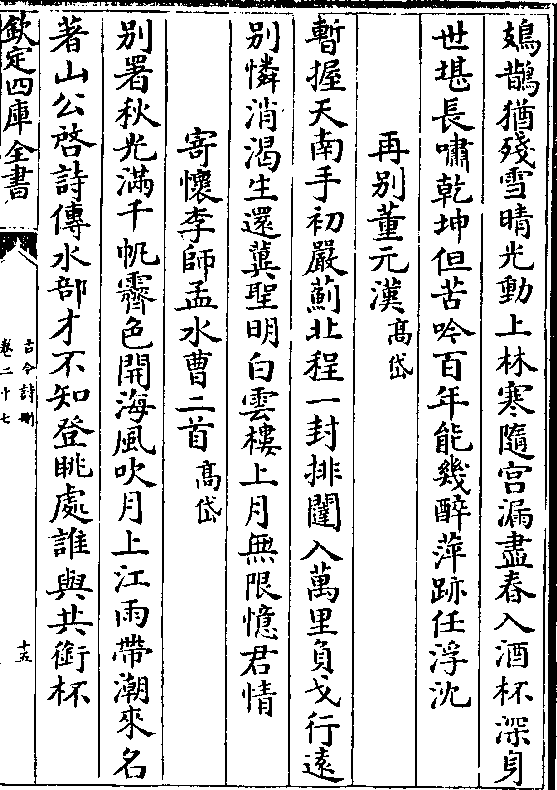 鳷鵲猶殘雪晴光動上林寒隨宫漏盡春入酒杯深身
世堪長嘯乾坤但苦吟百年能幾醉萍跡任浮沈
再别董元漢高岱
暫握天南手初嚴薊北程一封排闥入萬里負戈行遠
别憐消渴生還冀聖明白雲樓上月無限憶君情
寄懷李師孟水曹二首高岱
别署秋光滿千帆霽色開海風吹月上江雨帶潮來名
著山公啓詩傳水部才不知登眺處誰與共銜杯
欽定四庫全書
古今詩刪
卷二十七
十五